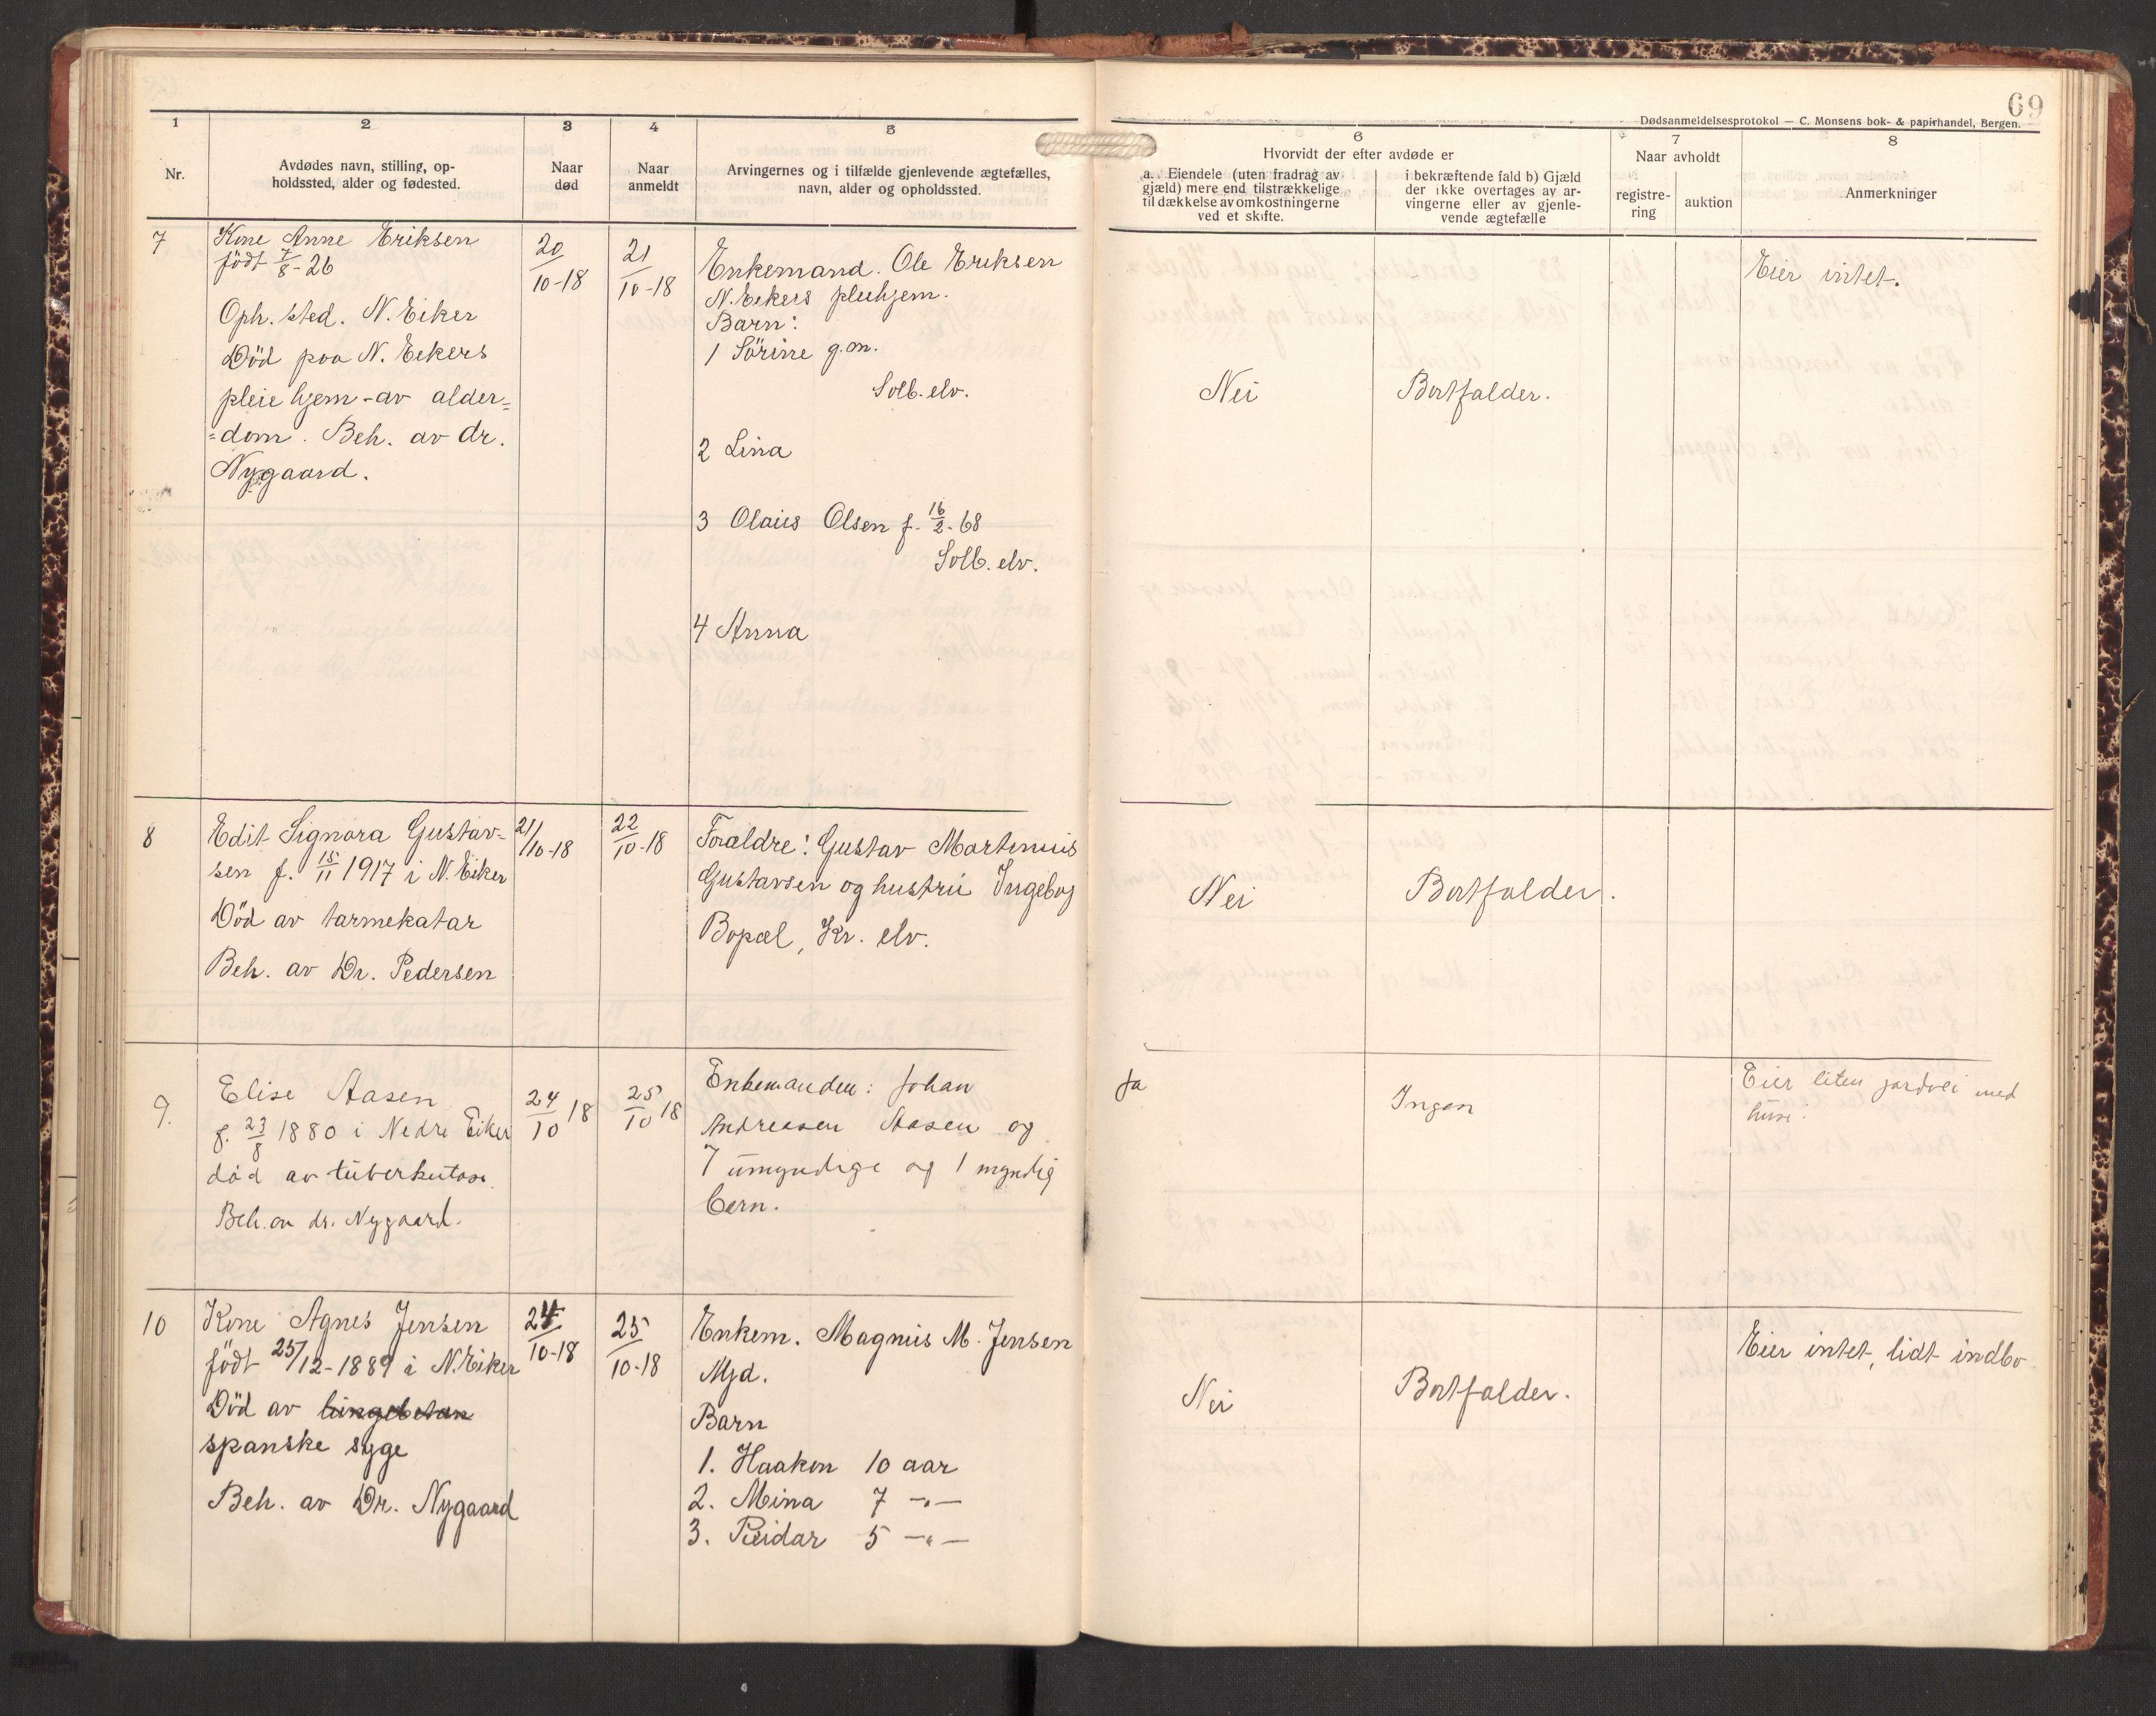 69
Dødsanmeldelsesprotokol — C. Monsens bok- & papirhandel, Bergen.
1
2
3
4
5
6
7
8
Nr.
Avdødes navn, stilling, op-
holdssted, alder og fødested.
Naar
død
Naar
anmeldt
Arvingernes og i tilfælde gjenlevende ægtefælles,
navn, alder og opholdssted.
Hvorvidt der efter avdøde er
a. Eiendele (uten fradrag av
gjæld) mere end tilstrækkelige
til dækkelse av omkostningerne
ved et skifte.
i bekræftende fald b) Gjæld
der ikke overtages av ar-
vingerne eller av gjenle-
vende ægtefælle
Naar avholdt
registre-
ring
auktion
Anmerkninger
7
Kone Anne Eriksen
födt 7/8-26
Oph. sted. N. Eiker
Död paa N. Eekers
pleiehjem - av alder=
=dom. Beh. av dr.
Nygaard.
20/10-18
21/10-18
Enkemand. Ole Eriksen
N. Eekers pleihjem.
Barn:
1 Sörine g.m.
Solb. elv.
2 Lina
3 Olaus Olsen f. 16/2-68
Solb. elv.
4 Anna
Nei
Bortfalder.
Eier intet.
8
Edit Signora Gustav-
sen f. 15/11 1917 i N. Eiker
Död av tarmekatar
Beh. av Dr. Pedersen
21/10-18
22/10-18
Forældre: Gustav Martinius
Gustavsen og hustru Ingebog
Bopæl, Kr. elv.
Nei
Bortfalder.
9.
Elise Aasen
f. 23/8 1880 i Nedre Eiker
död av tuberkulose.
Beh. av dr. Nygaard.
24/10 18
25/10 18
Enkemanden: Johan
Andreasen Aasen og
7 umyndige og 1 myndig
bern.
Ja
Ingen
Eier liten jordvei med
huse.
10
Kone Agnes Jensen
födt 25/12-1889 i N. Eiker
Död av lungebetæn
spanske syge
Beh. av Dr. Nygaard
24/10-18
25/10-18
Enkem. Magnus M. Jensen
Mjd.
Barn
1. Haakon 10 aar
2. Mina 7 -"-
3. Reidar 5 -"-
Nei
Bortfalder.
Eier intet, lidt indbo